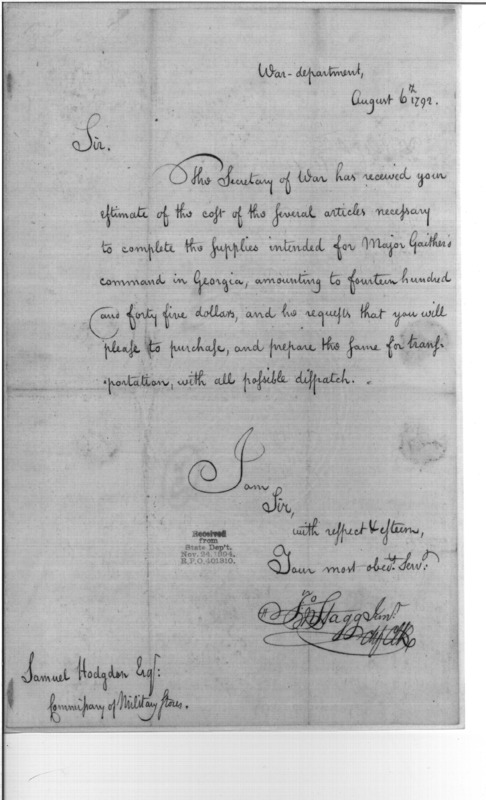 War-department,
August 6th 1792.
Sir.
The Secretary of War has received your
eſtimate of the coſt of the ſeveral articles neceſsary
to complete the supplies intended for Major Gaither's
command in Georgia, amounting to fourteen hundred
and forty five dollars, and he requeſts that you will
pleaſe to purchaſe, and prepare the ſame for tranſ-
-portation, with all poſsible diſpatch.
I am
Sir,
with reſpect & eſteem,
Your most obedt. Servt.
Jno Stagg Junr.
Received
from
State Dep't.
Nov. 24, 1894.
R.P.O. 401910.
Samuel Hodgdon Esqr:
Commiſsary of Military ſtores.